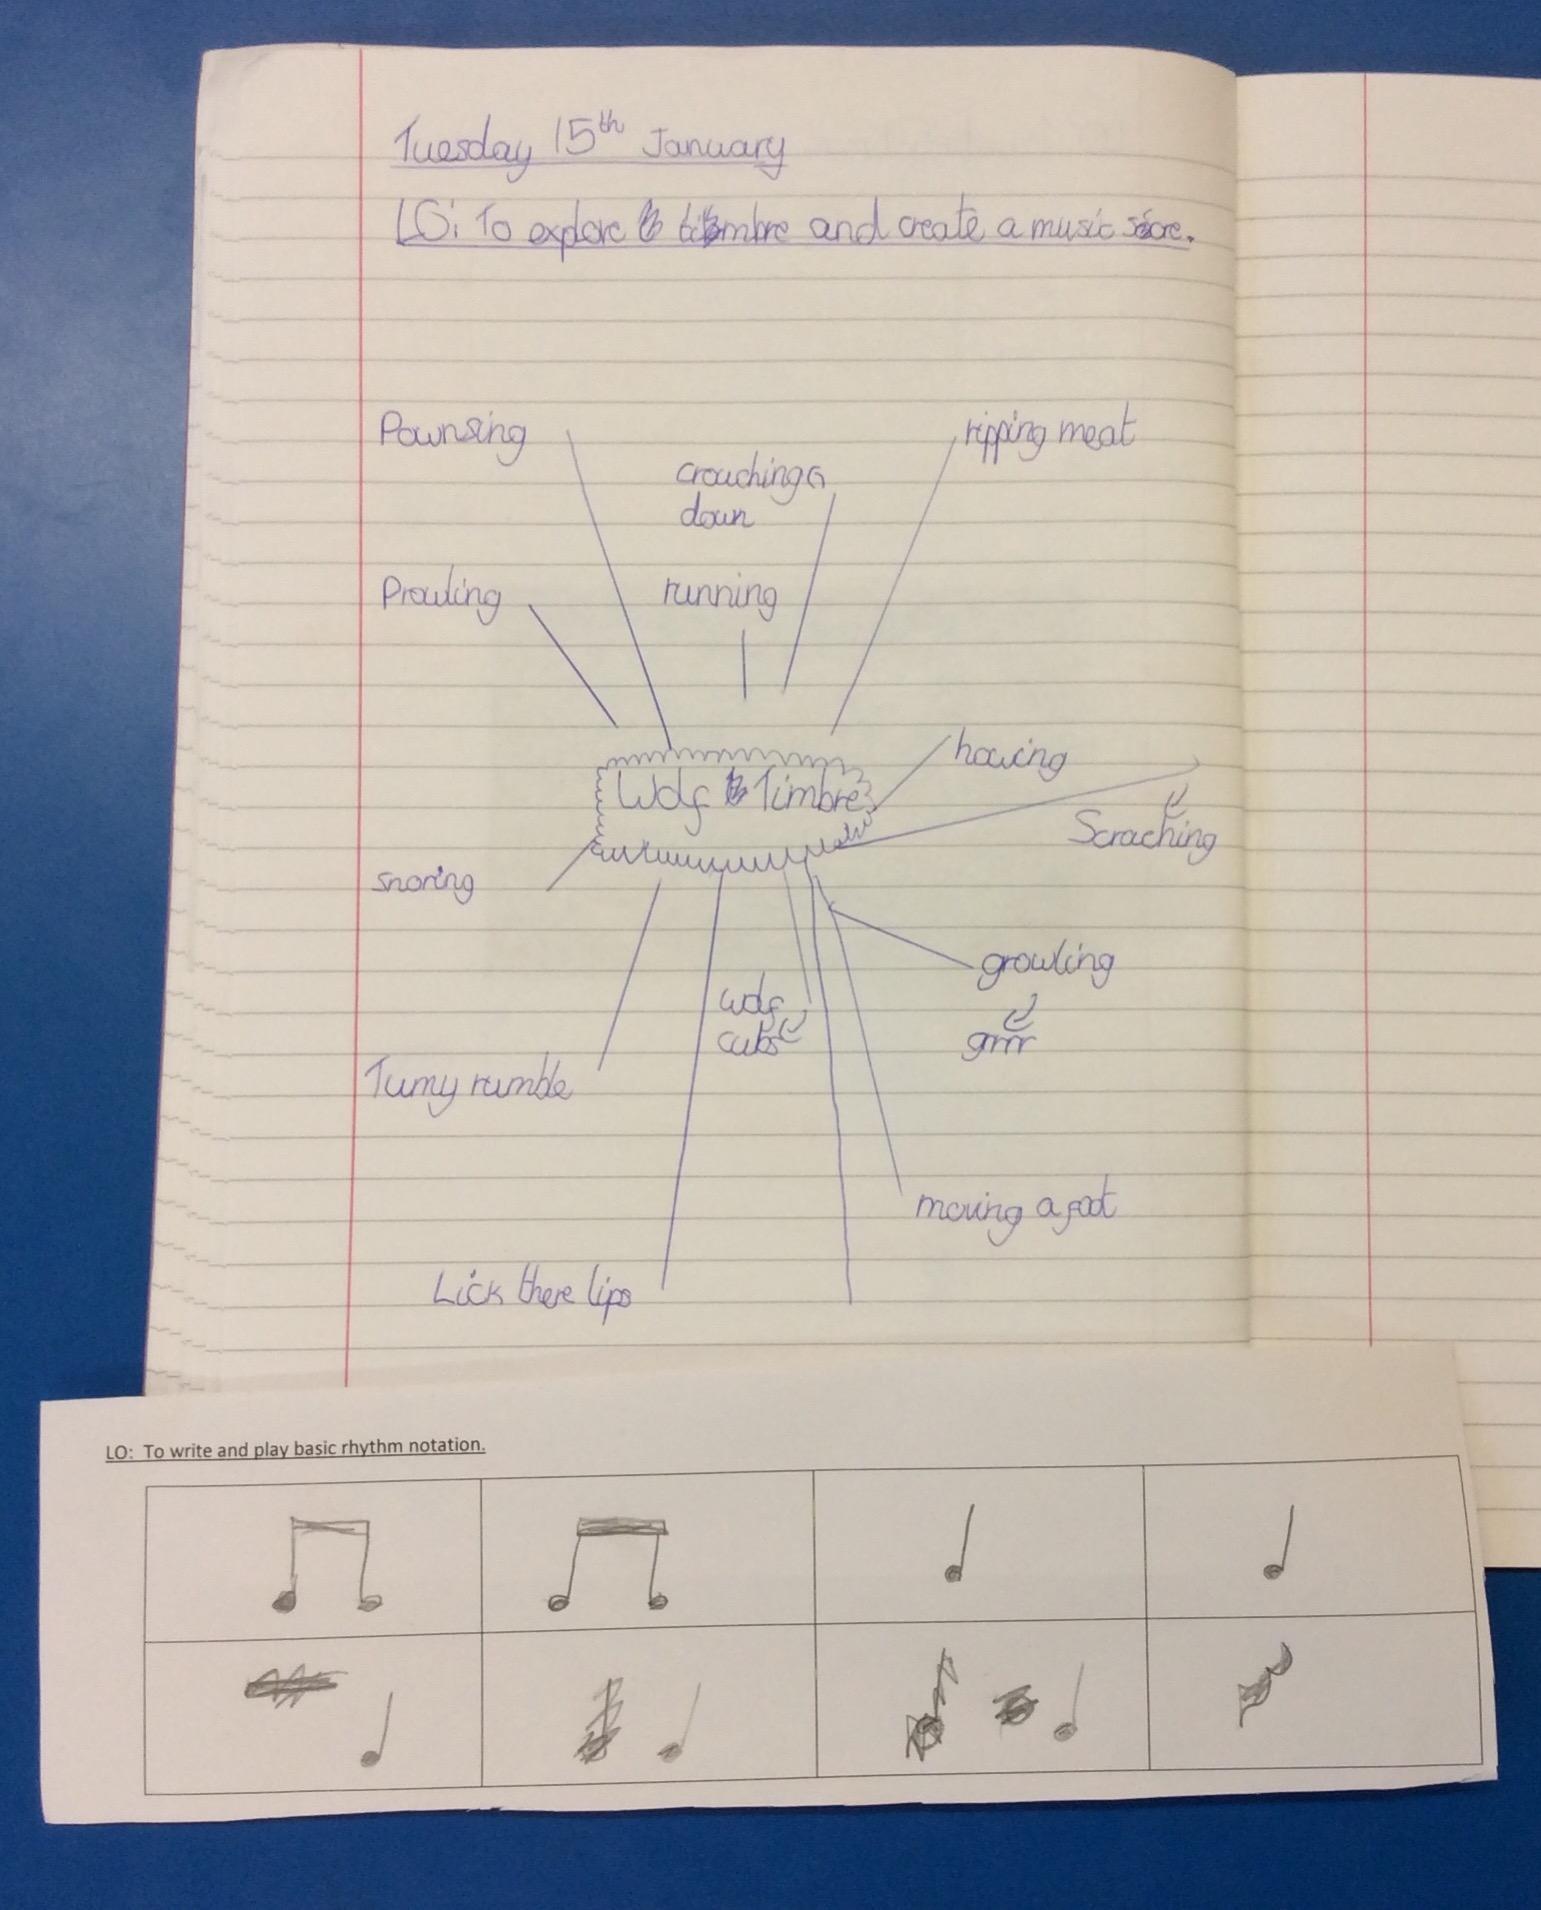 Tuesday 15th January
LO: To explore timbre and create a music score.
Pownsing
ripping meat
crouching
down
Prowling
running
howing
Wolf Timbre
Scraching
snoring
growling
wolf
cubs
grrr
Tumy rumble
moving a foot
Lick there lips
LO: To write and play basic rhythm notation.